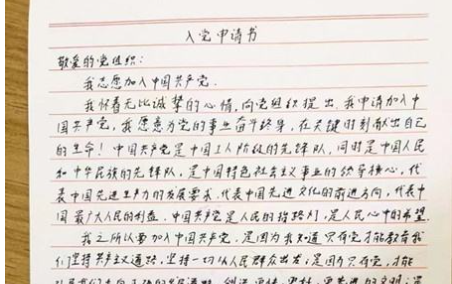 入党申请书
敬爱的党组织：
我志愿加入中国共产党。
我怀着无比诚挚的心情，向党组织提出，我申请加入中
国共产党，我愿意为党的事业奋斗终身，在关键时刻献出自己
的生命！中国共产党是中国工人阶级的先锋队，同时是中国人民
和中华民族的先锋队，是中国特色社会主义事业的领导核心，代
表中国先进生产力的发展要求，代表中国先进文化的前进方向，代表中
国最广大人民的利益，中国共产党是人民的指路灯，是人民心中的希望
我之所以要加入中国共产党，是因为我知道只有党才能教育我
们坚持共产主义道路，坚持一切从人民群众出发；是因为只有党，才能